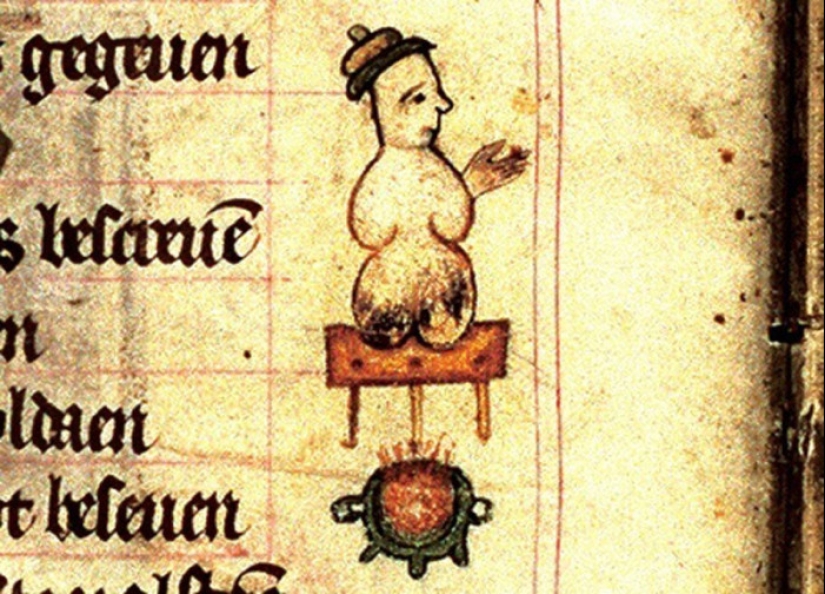 s gegeuen
s beſcreuē
n
ldaen
t beſeuen